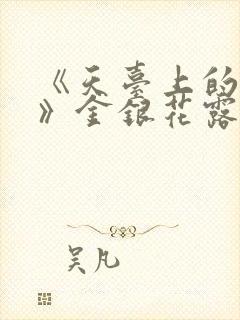 《天臺上的
》金銀花露
吴凡